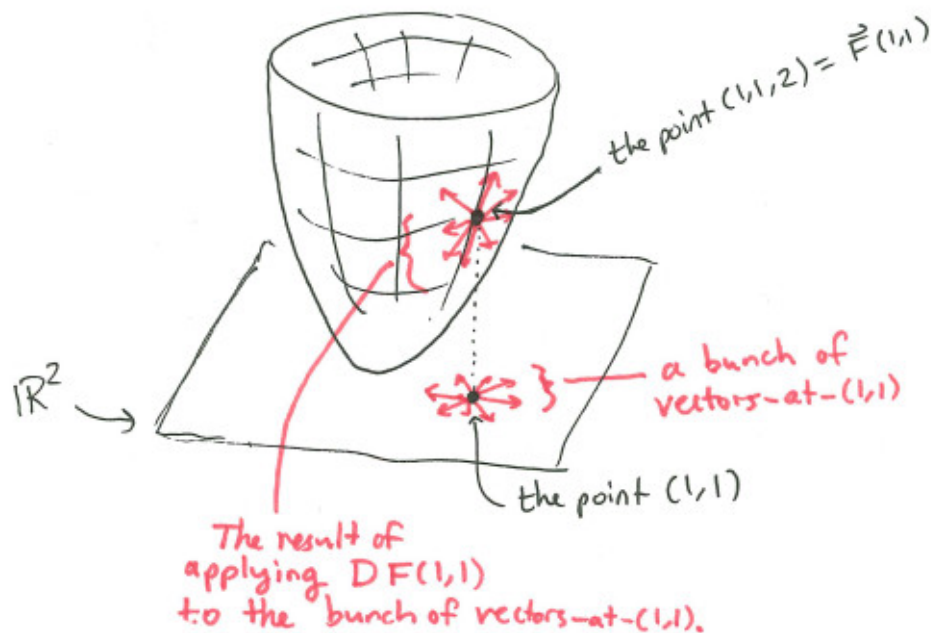 the point (1,1,2) = F⃗(1,1)
ℝ²
a bunch of
vectors-at-(1,1)
the point (1,1)
The result of
applying DF(1,1)
to the bunch of vectors-at-(1,1).